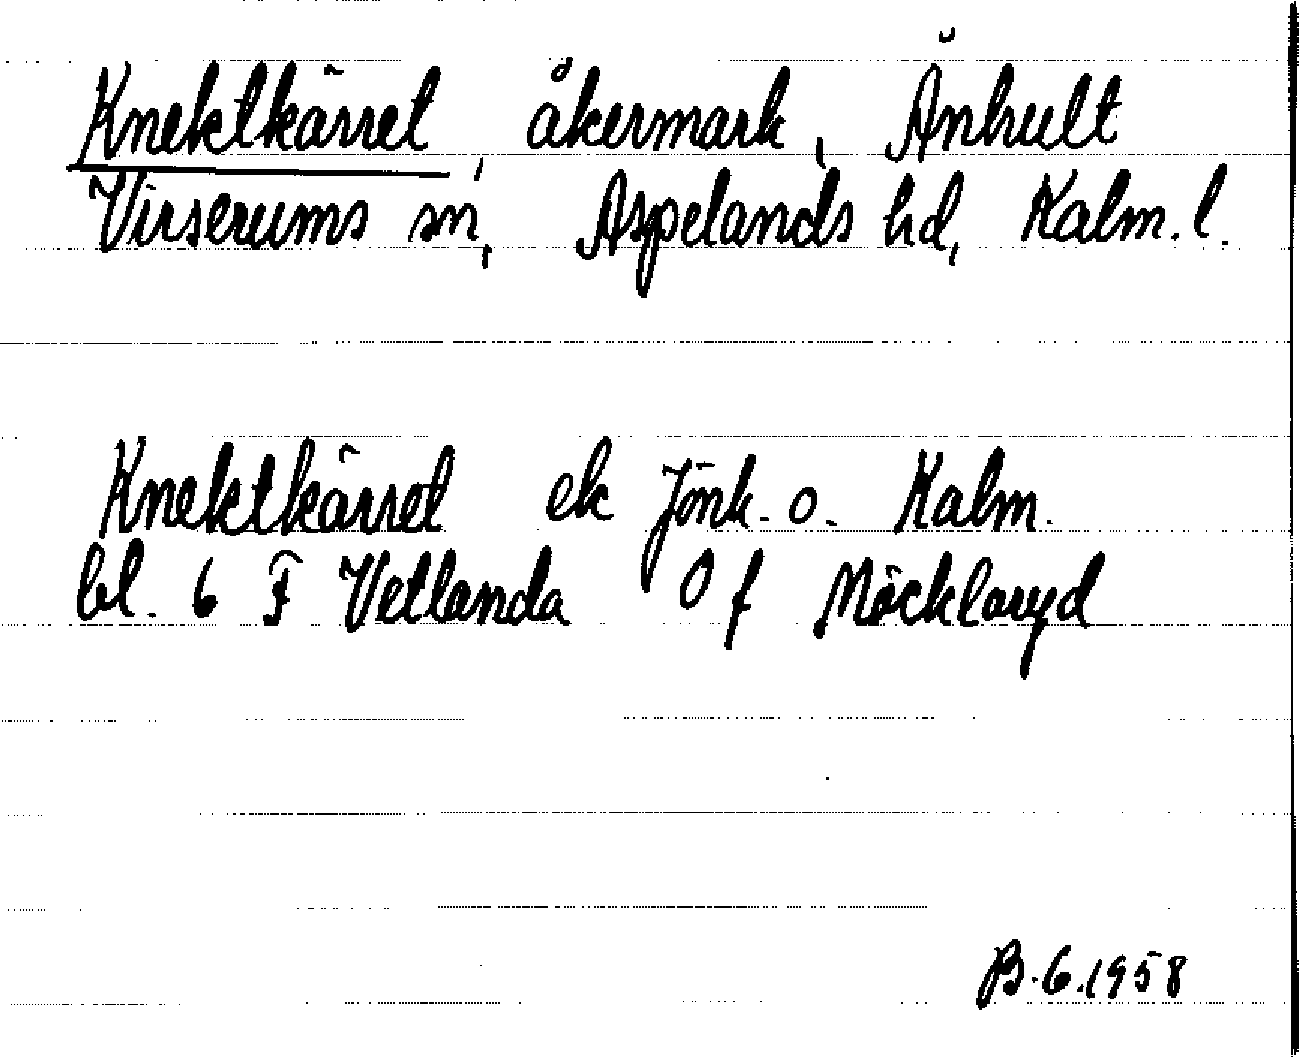 Knektkärret, åkermark, Änhult
Virserums sn, Aspelands hd, Kalm. l.
Knektkärret ek Jönk. o. Kalm.
bl. 6 F Vetlanda 0 f Möcklaryd
B. 6. 1958